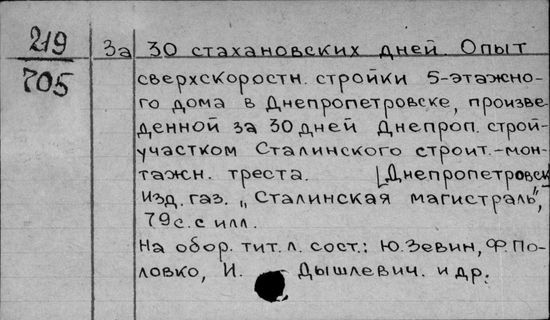 219
705
За 30 стахановских дней. Опыт
сверхскоростн. стройки 5-этажно-
го дома в Днепропетровске, произве-
денной за 30 дней Днепроп. строй-
участком Сталинского строит.-мон-
тажн. треста. [Днепропетровск
Изд. газ. „Сталинская магистраль",
79 с. с илл.
На обор. тит. л. сост.: Ю. Зевин, Ф. По-
ловко, И. Дышлевич. и др.